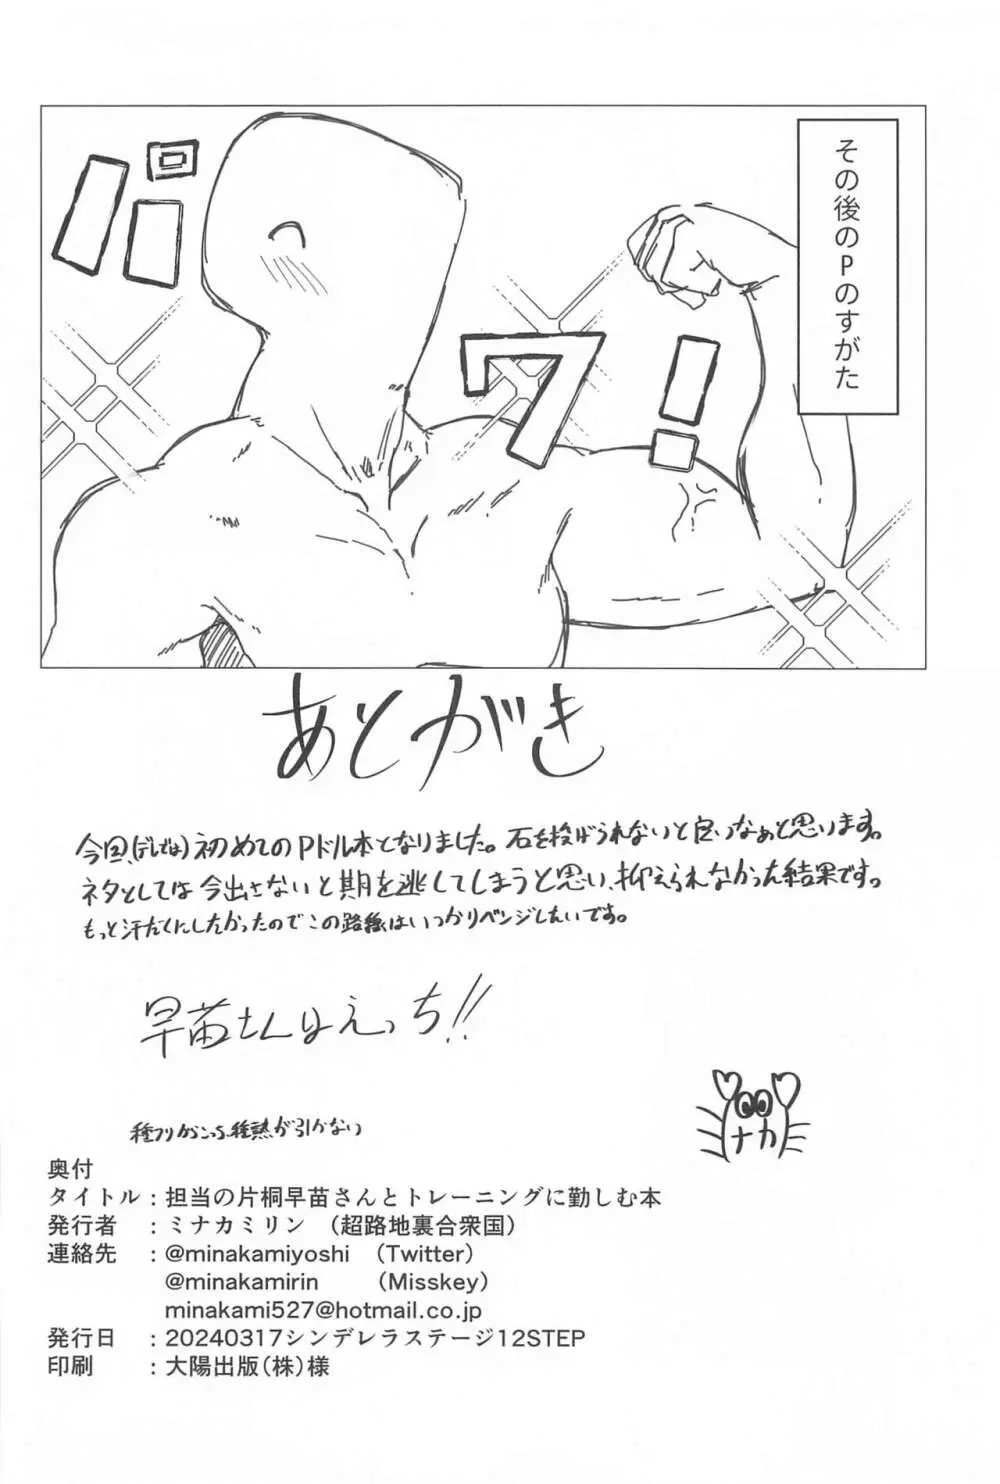 その後のPのすがた
パワ!
あとがき
今回、(デレでは)初めてのPドル本となりました。石を投げられないと良いなぁと思います。
ネタとしては今出さないと期を逃してしまうと思い、抑えられなかった結果です。
もっと汗だくにしたかったのでこの路線はいつかリベンジしたいです。
早苗さんはえっち!!
ナカ
奥付
タイトル:担当の片桐早苗さんとトレーニングに勤しむ本
発行者 :ミナカミリン (超路地裏合衆国)
連絡先 :@minakamiyoshi (Twitter)
@minakamirin (Misskey)
minakami527@hotmail.co.jp
発行日 :20240317シンデレラステージ12STEP
印刷 :大陽出版(株)様